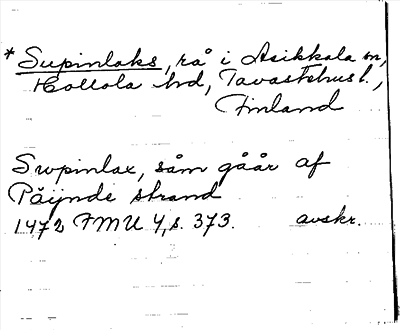 * Supinlaks, rå i Asikkala sn,
Hollola hd, Tavastehus l.,
Finland
Swpinlax, såm gåår af
Päijnde strand
1472 FMU 4, s. 373. avskr.